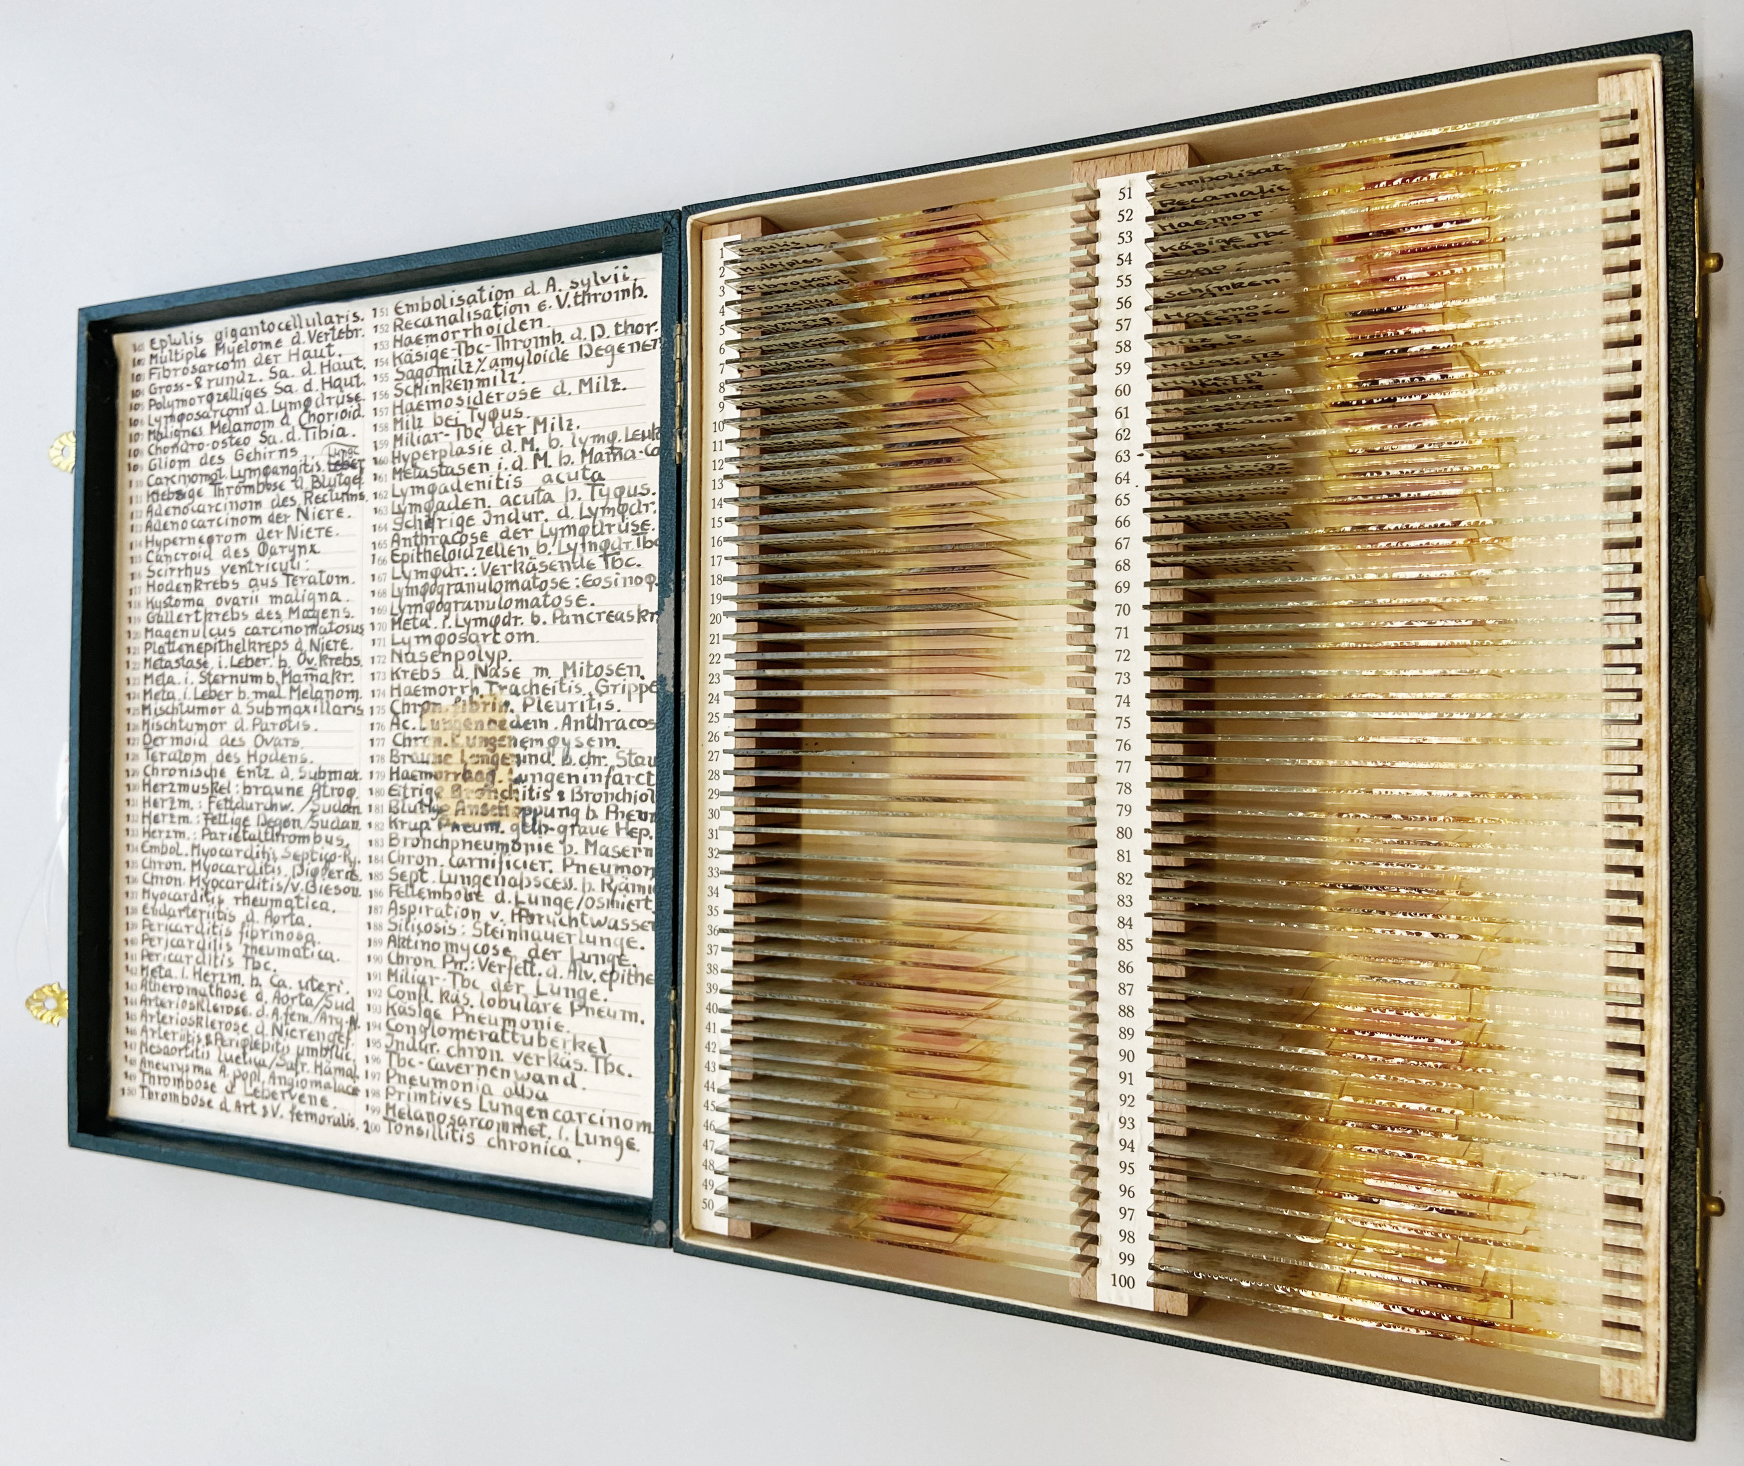 101 Epulis gigantocellularis.
102 Multiple Myelome d. Vertebr.
103 Fibrosarcom der Haut.
104 Gross-& rundz. Sa. d. Haut.
105 Polymorqzelliges Sa. d. Haut.
106 Lymqosarcom d. Lymqdrüse.
107 Malignes Melanom d. Chorioid.
108 Chondro-osteo Sa. d. Tibia.
109 Gliom des Gehirns
Lunge
110 Carcinomat. Lymqangitis Leber
111 Krebsige Thrombose d. Blutgef.
112 Adenocarcinom des Rectums.
113 Adenocarcinom der Niere.
114 Hyperneqrom der Niere.
115 Cancroid des Qarynx
116 Scirrhus ventriculi.
117 Hodenkrebs aus Teratom.
118 Kystoma ovarii maligna.
119 Gallertkrebs des Magens.
120 Magenulcus carcinomatosus
121 Plattenepithelkreps d. Niere.
122 Metastase i. Leber b. Ov. krebs.
123 Meta. i. Sternum b. Mamakr.
124 Meta. i. Leber b. mal. Melanom.
125 Mischtumor d. Submaxillaris
126 Mischtumor d. Parotis.
127 Dermoid des Ovars.
128 Teratom des Hodens.
129 Chronische Entz. d. Submax.
130 Herzmuskel: braune Atroq.
131 Herzm.: Fettdurchw. /Sudan
132 Herzm.: Fettige Degen/Sudan.
133 Herzm.: Parietalthrombus.
134 Embol. Myocarditis Septico-Py.
135 Chron. Myocarditis Diqterie.
136 Chron. Myocarditis/v. Gieson.
137 Myocarditis rheumatica.
138 Endarteriitis d. Aorta.
139 Pericarditis fibrinosa.
140 Pericarditis rheumatica.
141 Pericarditis Tbc.
142 Meta. i. Herzm. b. Ca. uteri.
143 Atheromathose d. Aorta/Sud
144 Arteriosklerose. d. A. fem./
145 Arteriosklerose d. Nierengef.
146 Arteriitis & Periqlebitis umbilic.
147 Mesaortitis luetica/Sufr. Hämal.
148 Aneurysma A. popl. Angiomalace
149 Thrombose d. Lebervene.
150 Thrombose d. Art & V. femoralis.
151 Embolisation d. A. sylvii.
152 Recanalisation e. V. thromb.
153 Haemorrhoiden
154 Käsige-Tbc-Thromb. d. D. thor.
155 Sagomilz/amyloide Degener
156 Schinkenmilz.
157 Haemosiderose d. Milz.
158 Milz bei Tyqus.
159 Miliar-Tbc der Milz.
160 Hyperplasie d. M. b. lymq. Leuk
161 Metastasen i. d. M. b. Mama-Ca
162 Lymqadenitis acuta
163 Lymqaden. acuta b. Tyqus.
164 Schwirige Indur. d. Lymqdr.
165 Anthracose der Lymqdrüse.
166 Epitheloidzellen b. Lymqdr. Tbc
167 Lymqdr.: Verkäsende Tbc.
168 Lymqogranulomatose: Eosinoq.
169 Lymqogranulomatose.
170 Meta. i. Lymqdr. b. Pancreaskr
171 Lymqosarcom.
172 Nasenpolyp.
173 Krebs d. Nase m. Mitosen.
174 Haemorrh. Tracheitis, Grippe
175 Chron. fibrin. Pleuritis.
176 Ac. Lungenoedem. Anthracos
177 Chron. Lungenemqysem.
178 Braune Lungenind. b. chr. Stau
179 Haemorrhag. Lungeninfarct
180 Eitrige Bronchitis & Bronchiol
181 Blutige Anschoppung b. Pneum
182 Krup. Pneum. gelb-graue Hep.
183 Bronchpneumonie b. Masern
184 Chron. carnificier. Pneumon
185 Sept. Lungenabscess. b. Pyämie
186 Fettembolie d. Lunge/osmiert
187 Aspiration v. Fruchtwasser
188 Silicosis: Steinhauerlunge.
189 Aktinomycose der Lunge.
190 Chron. Pn.: Verfett. d. Alv. epithe
191 Miliar-Tbc der Lunge.
192 Confl. käs. lobuläre Pneum.
193 Käsige Pneumonie.
194 Conglomerattuberkel
195 Indur. chron. verkäs. Tbc.
196 Tbc-Cavernenwand.
197 Pneumonia alba
198 Primtives Lungencarcinom
199 Melanosarcommet. i. Lunge.
200 Tonsillitis chronica.
1
2
3
4
5
6
7
8
9
10
11
12
13
14
15
16
17
18
19
20
21
22
23
24
25
26
27
28
29
30
31
32
33
34
35
36
37
38
39
40
41
42
43
44
45
46
47
48
49
50
Epulis
Multiples
Fibrosar.
51
52
53
54
55
56
57
58
59
60
61
62
63
64
65
66
67
68
69
70
71
72
73
74
75
76
77
78
79
80
81
82
83
84
85
86
87
88
89
90
91
92
93
94
95
96
97
98
99
100
Embolisat
Recanalis
Haemor
Käsige Tbc
Sago
Schinken
Haemo
Milz b